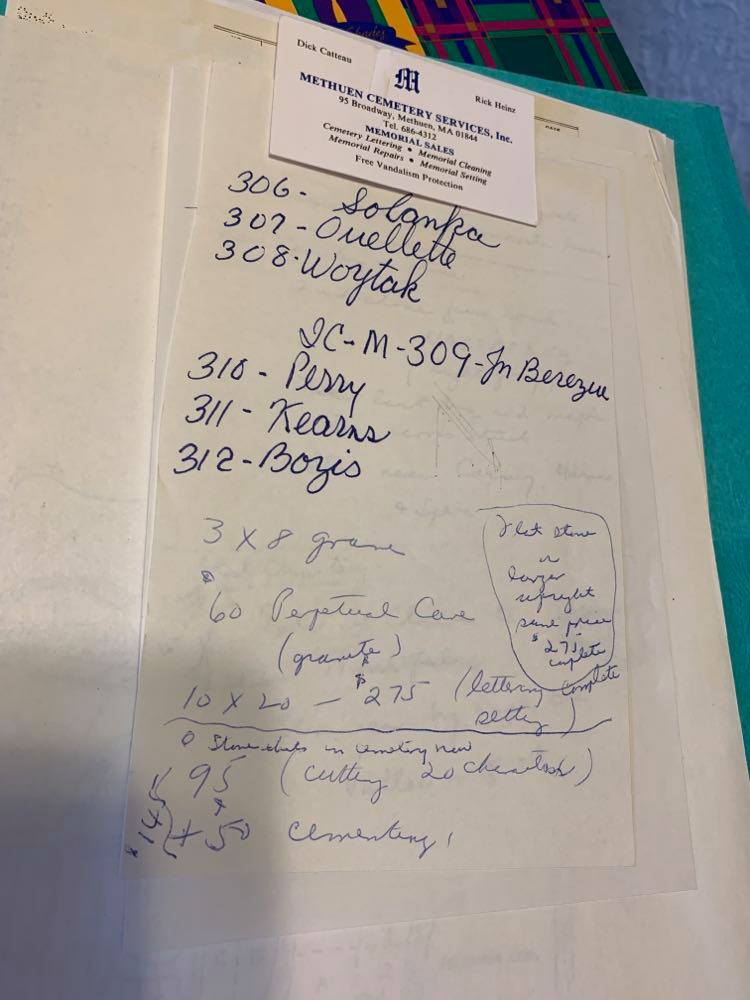 Dick Catteau
M
Rick Heinz
METHUEN CEMETERY SERVICES, Inc.
95 Broadway, Methuen, MA 01844
Tel. 686-4312
MEMORIAL SALES
Cemetery Lettering • Memorial Cleaning
Memorial Repairs • Memorial Setting
Free Vandalism Protection
306- Solanka
307-Ouellette
308-Woytak
309-Jn
310- Perry
311- Kearns
312-Bozis
3 X 8 grave
$60 Perpetual Care
(granite)
10 X 20 - $275 (lettering complete
setting)
Flat stone
or
larger
upright
same price
$275
complete
Stone in cemetery now
95 (cutting 20 )
$145 + $50 cementing